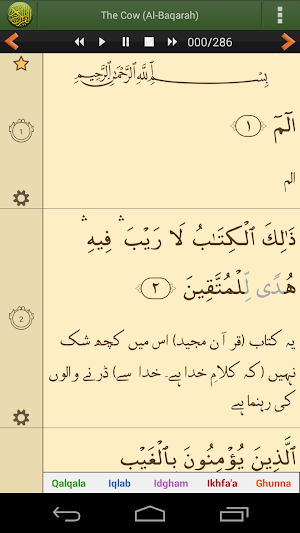 The Cow (Al-Baqarah)
000/286
بِسْمِ ٱللَّهِ ٱلرَّحْمَٰنِ ٱلرَّحِيمِ
1
الٓمٓ ١
الم
ذَٰلِكَ ٱلْكِتَـٰبُ لَا رَيْبَ ۛ فِيهِ ۛ
هُدًى لِّلْمُتَّقِينَ ٢
2
یہ کتاب (قر آن مجید) اس میں کچھ شک
نہیں (کہ کلامِ خدا ہے۔ خدا سے) ڈرنے والوں
کی رہنما ہے
ٱلَّذِينَ يُؤْمِنُونَ بِٱلْغَيْبِ
Qalqala Iqlab Idgham Ikhfa'a Ghunna